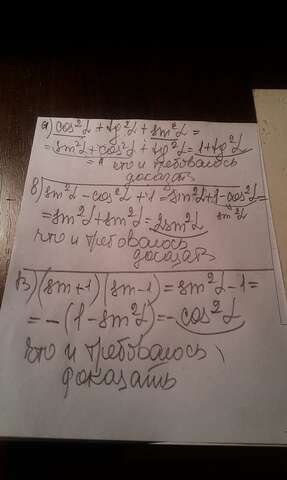 а) cos²α + tg²α + sin²α =
= sin²α + cos²α + tg²α = 1 + tg²α
= 1 что и требовалось
доказать
б) sin²α - cos²α + 1 = sin²α + 1 - cos²α =
sin²α
= sin²α + sin²α = 2sin²α
что и требовалось
доказать
в) (sin+1) (sin-1) = sin²α - 1 =
= -(1 - sin²α) = -cos²α
что и требовалось
доказать